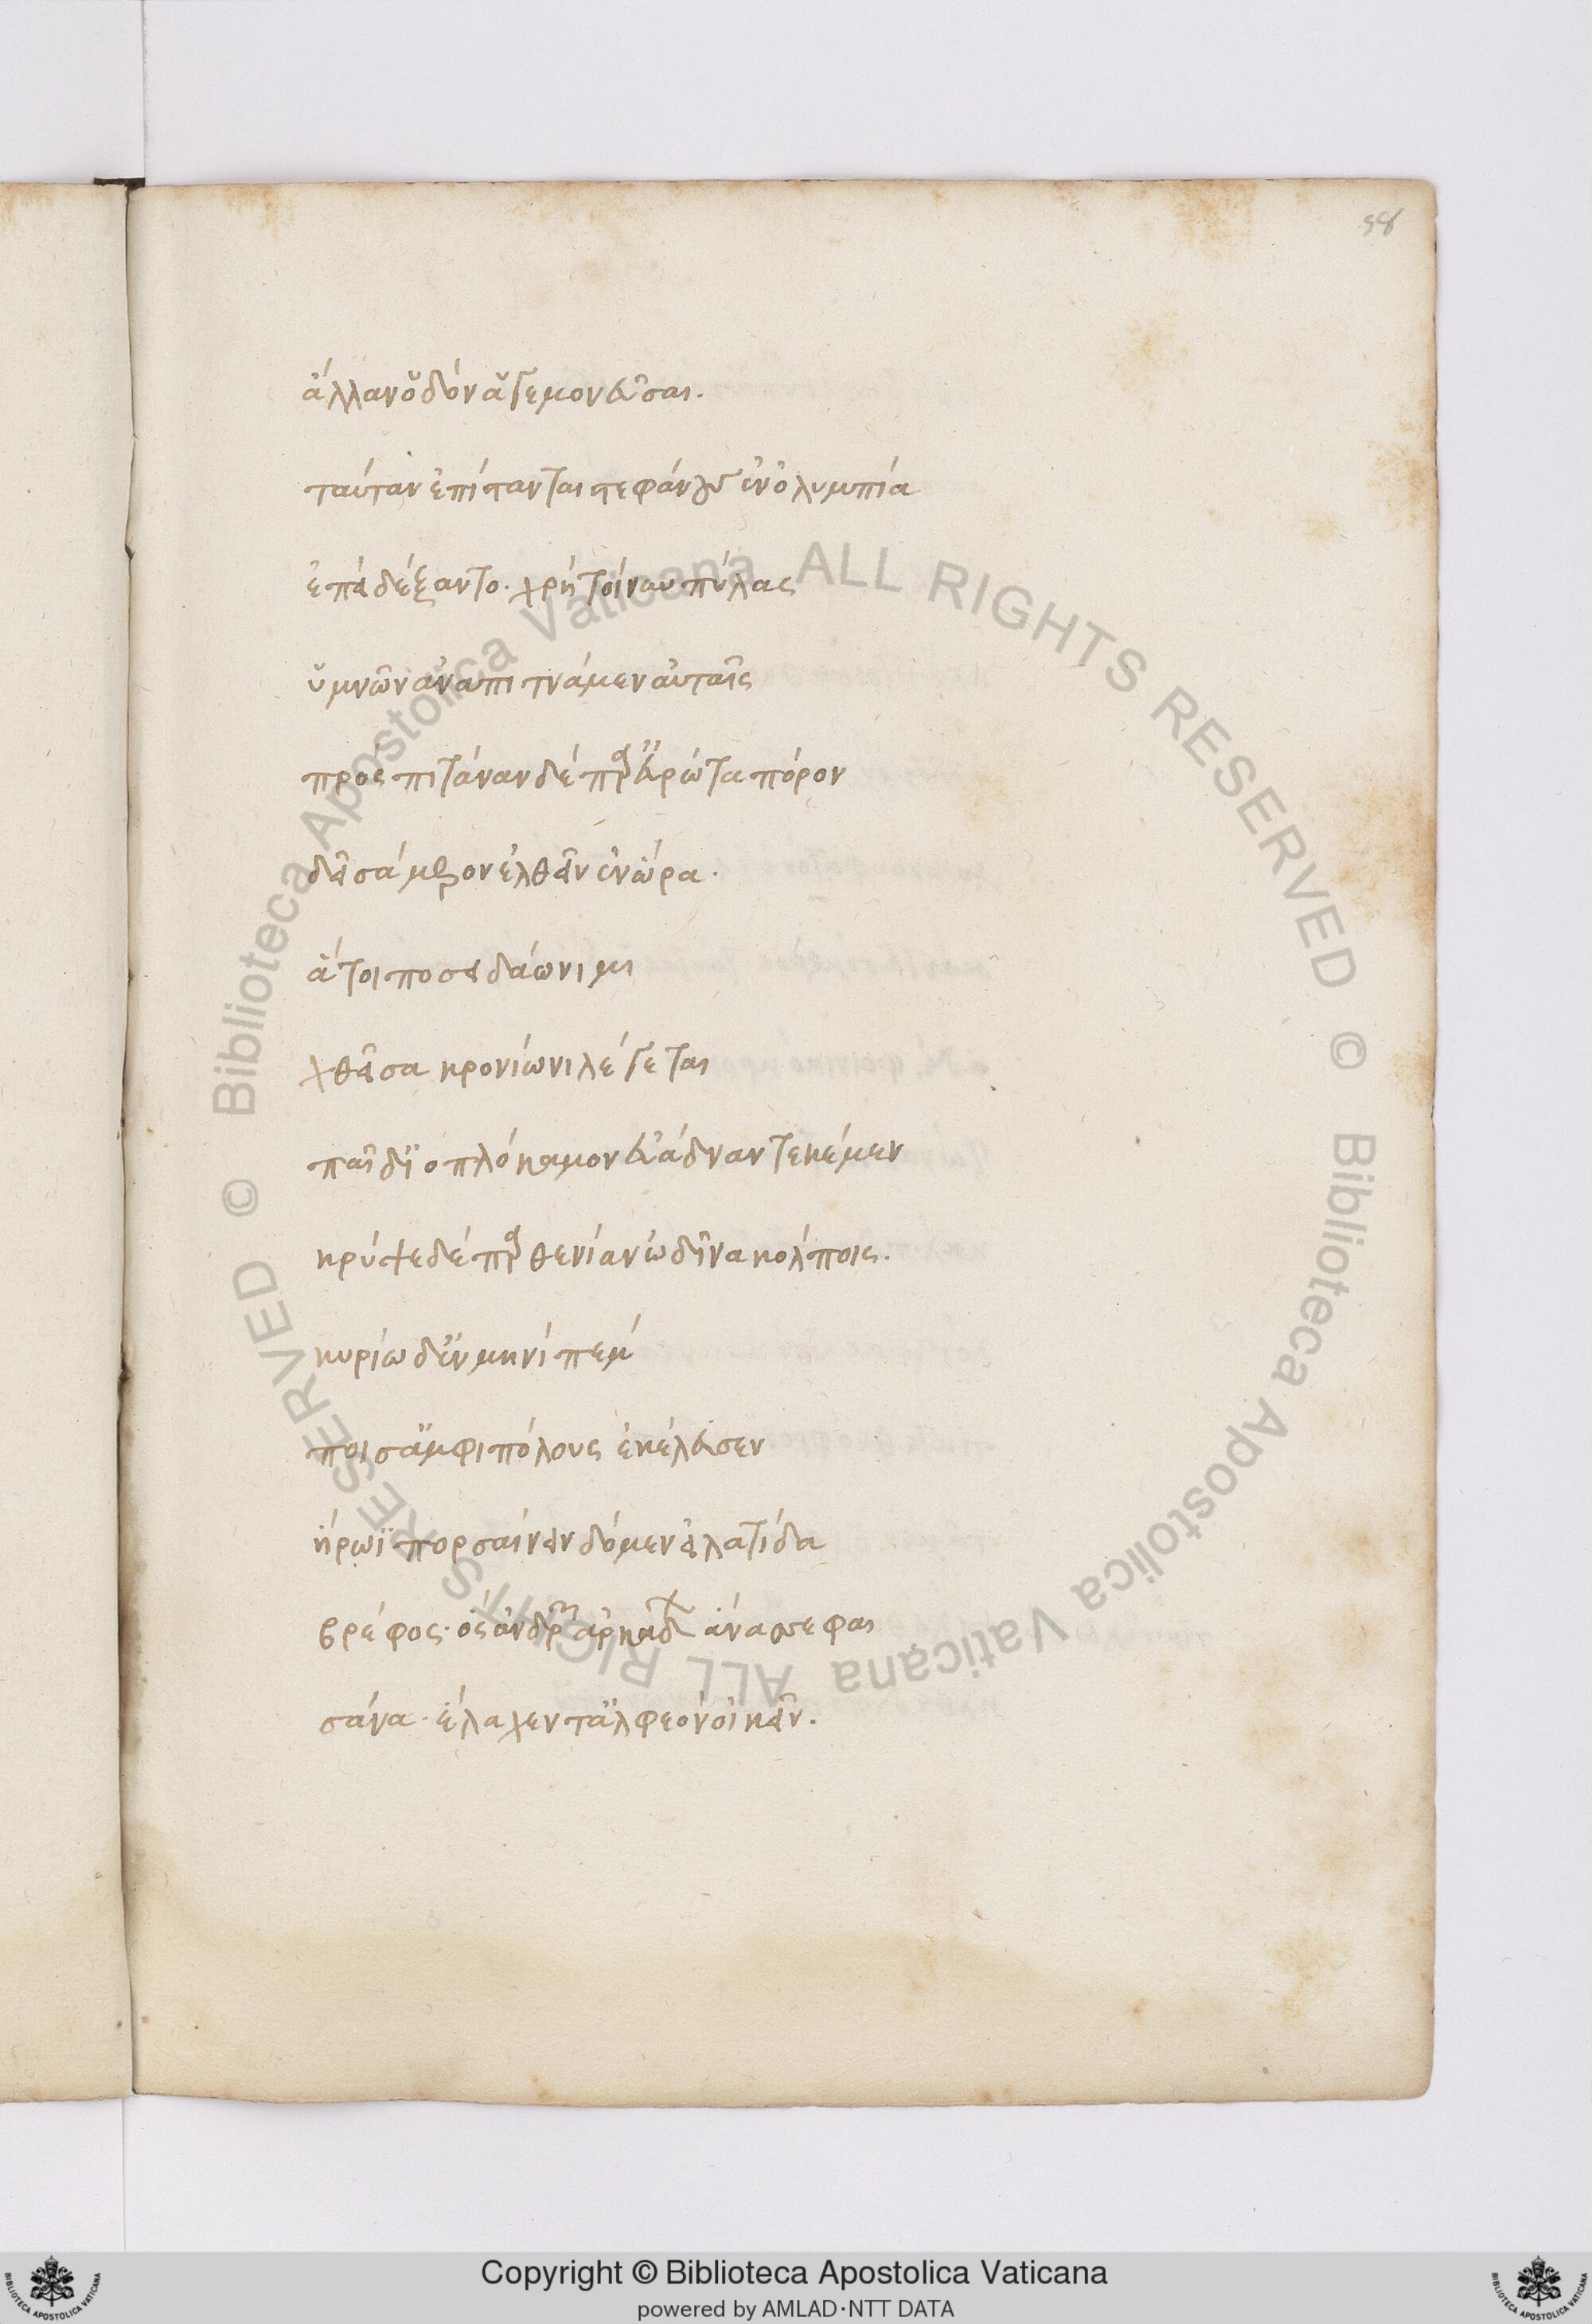 58
ἀλλᾶν ὁδὸν ἁγεμονεῦσαι.
ταύταν ἐπίστανται στεφάνους ἐν ὀλυμπία
ἐπεὶ δέξαντο. χρὴ τοίνυν πύλας
ὕμνων ἀναπιτνάμεν αὐταῖς
πρὸς πιτάναν δὲ παρ' εὐρώτα πόρον
δεῖ σάμερον ἐλθεῖν ἐν ὥρα.
ἅ τοι ποσειδάωνι μι
χθεῖσα κρονίωνι λέγεται
παῖδ' ἰοπλόκαμον εὐάδναν τεκέμεν
κρύψε δὲ παρθενίαν ὠδῖνα κόλποις.
κυρίω δ' ἐν μηνὶ πέμ
ποισ' ἀμφιπόλους ἐκέλευσεν
ἥρωϊ πορσαίνειν δόμεν εἰλατίδα
βρέφος. ὃς ἀνδρῶν ἀρκάδων ἄνασσε φαι
σάνα. ἔλαχεν τ' ἀλφεὸν οἰκεῖν.
Biblioteca Apostolica Vaticana ALL RIGHTS RESERVED ©
Biblioteca Apostolica Vaticana ALL RIGHTS RESERVED ©
BIBLIOTECA APOSTOLICA VATICANA
Copyright © Biblioteca Apostolica Vaticana
powered by AMLAD·NTT DATA
BIBLIOTECA APOSTOLICA VATICANA